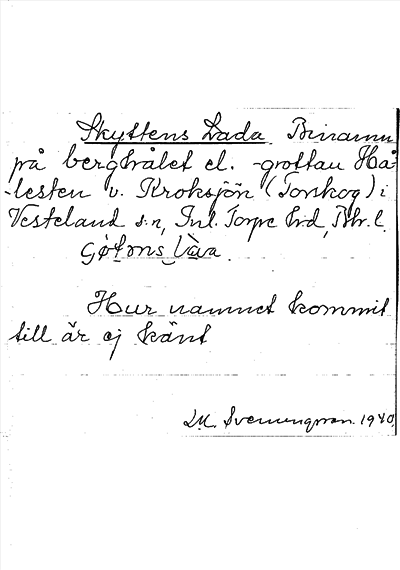 Skyttens Lada. Binamn
på berghålet el. -grottan Hå-
-lesten v. Kroksjön (Torskog) i
Vesteland s:n, Inl. Torpe hrd, Bhr. l.
Gøtons Väa.
Hur namnet kommit
till är ej känt
L.M. Svenungsson. 1940.